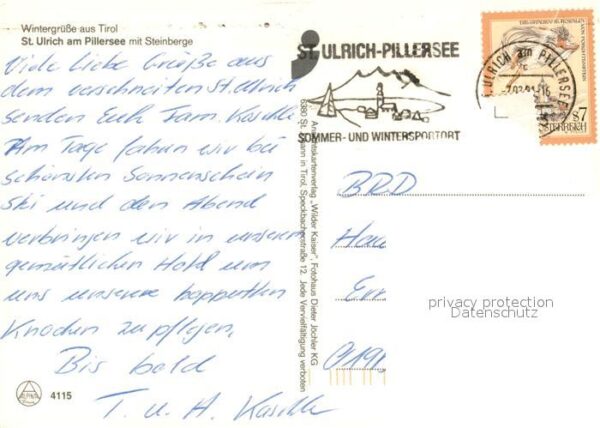 Wintergrüße aus Tirol
St. Ulrich am Pillersee mit Steinberge
Viele liebe Grüße aus
dem verschneiten St. Ulrich
senden Euch Fam.
Am Tage fahren wir bei
schönsten Sonnenschein
Ski und den Abend
verbringen wir in unserem
gemütlichen Hotel um
uns unsere
Knochen zu pflegen.
Bis bald
T. u. A.
4115
Ansichtskartenverlag „Wilder Kaiser", Fotohaus Dieter Jöchler KG
6380 St. Johann in Tirol, Speckbacherstraße 12. Jede Vervielfältigung verboten
ST. ULRICH-PILLERSEE
SOMMER- UND WINTERSPORTORT
ULRICH am PILLERSEE
S7
BRD
privacy protection
Datenschutz